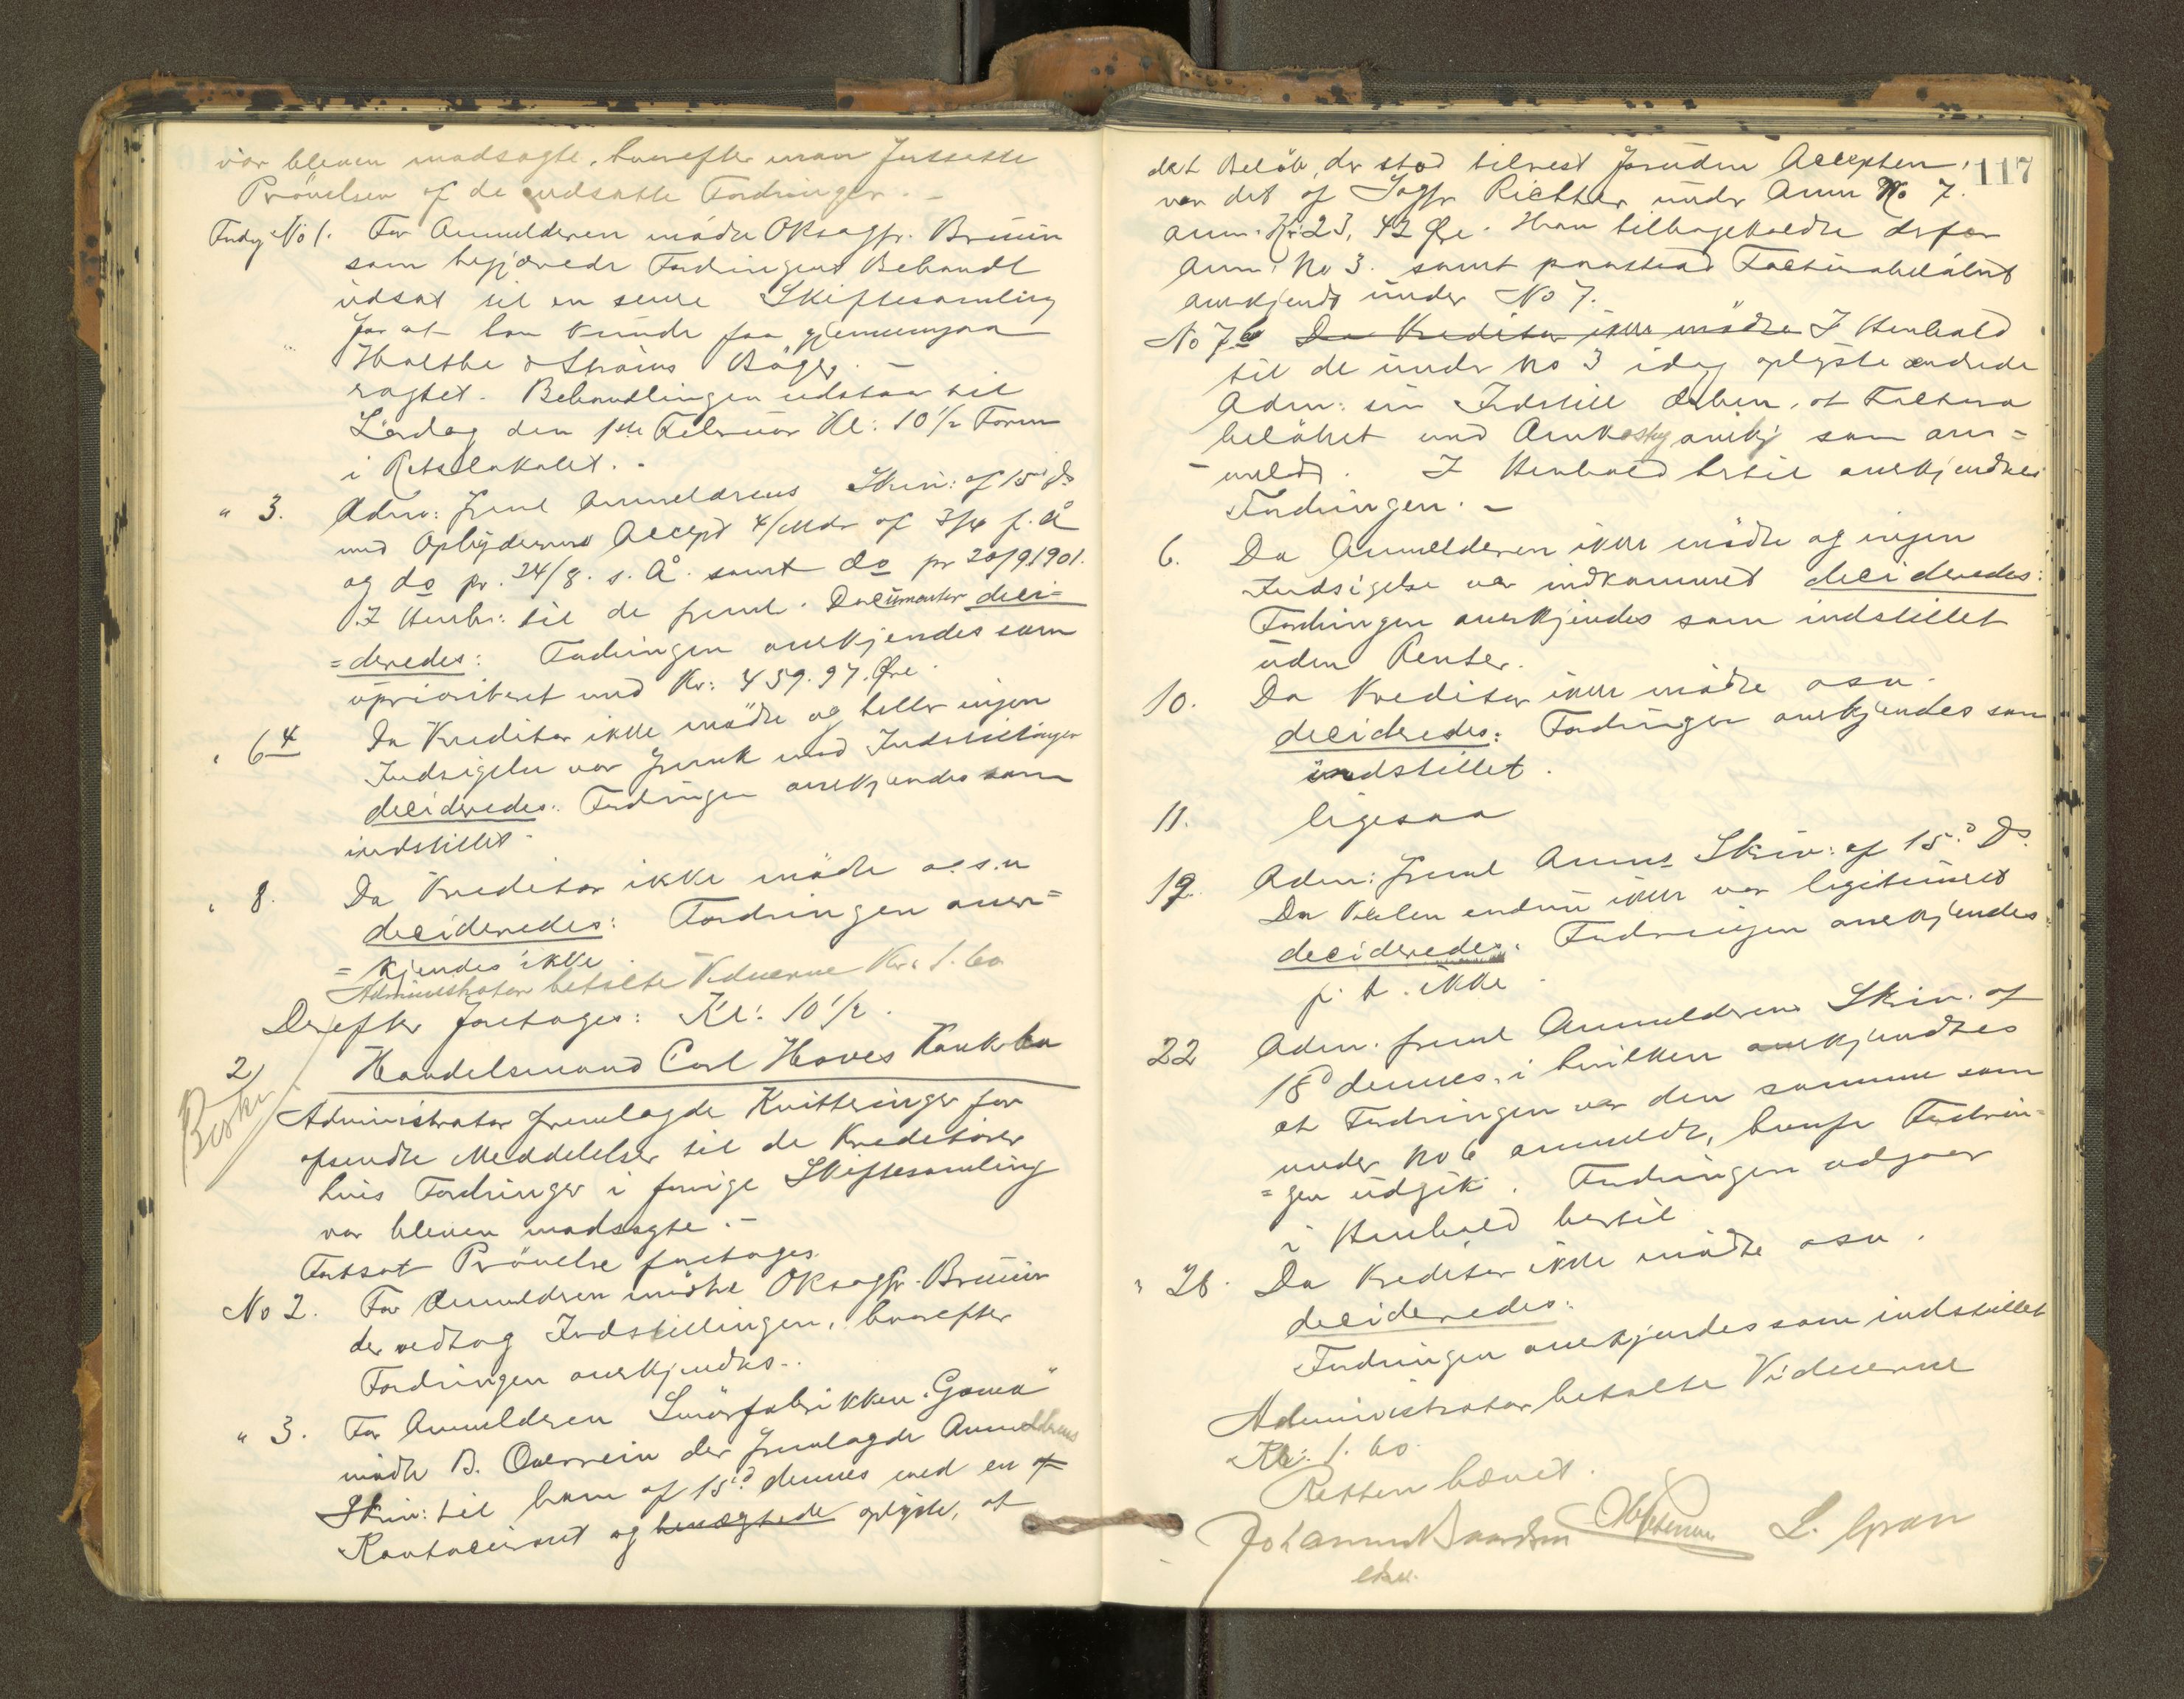 var bleven modsagte, hvorefter man fortsatte
Prövelsen af de udsatte Fordringer. -
Fordg No 1. For Anmelderen mødte OKsagfr. Bruun
som begjærede Fordringens Behandl
udsat til en senere Skiftesamling
for at han kunde faa gjennemgaa
Holthe & Ströms Böger. -
vagtet. Behandlingen udstaar til
Lördag den 1ste Februar Kl: 10 1/2 Form
i Retslokalet. -
" 3. Adm: freml Anmelderens Skriv: af 15 ds
med Oplydernes Accept 4/Mdr af 3/4 f. Å
og do pr. 24/8. s. Å. samt do pr 20/9 1901.
I Henh: til de freml. Documenter deci=
=deredes: Fordringen anerkjendes som
uprioriteret med Kr: 459.97. Øre
" 6 4 Da Kreditor ikke mödte og heller ingen
Indsigelse var fremk mod Indstillingen
decideredes: Fordringen anerkjendes som
indstillet.
" 8. Da Kreditor ikke mödte o. s. v
decideredes: Fordringen aner=
=kjendes ikke.
Administrator betalte Vidnerne Kr: 1.60
Derefter foretages: Kl: 10 1/2.
2/ Handelsmand Carl Hoves Konkbo
Beskr
Administrator fremlagde Kvitteringer for
afsendte Meddelelser til de Kreditorer
hvis Fordringer i forrige Skiftesamling
var bleven modsagte. -
Fortsat Prövelse foretages.
No 2. For Anmelderen mödte OKsagfr. Bruun
der vedtog Indstillingen, hvorefter
Fordringen anerkjendtes. -
" 3. For Anmelderen Smörfabrikken "Goma"
mödte B. Overrein der fremlagde Anmelderens
Skriv: til ham af 15de dennes med en
Kontocourant og benægtede oplyste, at
117
det Belöb, der stod tilrest foruden Accepten,
var det af Sagfr Richter under Anm No 7.
anm. Kr: 23, 42 Øre. Han tilbagekaldte derfor
Anm: No 3. samt paastod Facturabelöbet
anerkjendt under No 7.
No 7 Da Kreditor ikke mödte I Henhold
til de under No 3 idag oplyste ændrede
Adm: sin Indstill derhen, at Factura
belöbet med anerkj som an=
=meldt. I Henhold hertil anerkjendtes
Fordringen. -
6. Da Anmelderen ikke mödte og ingen
Indsigelse var indkommet decideredes:
Fordringen anerkjendes som indstillet
uden Renter.
10. Da Kreditor ikke mödte osv.
decideredes: Fordringen anerkjendes som
indstillet.
11. ligesaa
12. Adm: freml Anms Skriv: af 15d Ds.
Da endnu ikke var legitimeret
decideredes: Fordringen anerkjendes
p. t. ikke.
22 Adm. freml Anmelderens Skriv. af
18d dennes, i hvilken anerkjendtes
at Fordringen var den samme som
under No 6 anmeldt, hvorfor Fordrin=
=gen udgik. Fordringen udgaar
i Henhold hertil
" 26. Da Kreditor ikke mödte osv.
decideredes:
Fordringen anerkjendes som indstillet
Administrator betalte Vidnerne
Kr: 1.60.
Retten hævet.
L. Gran